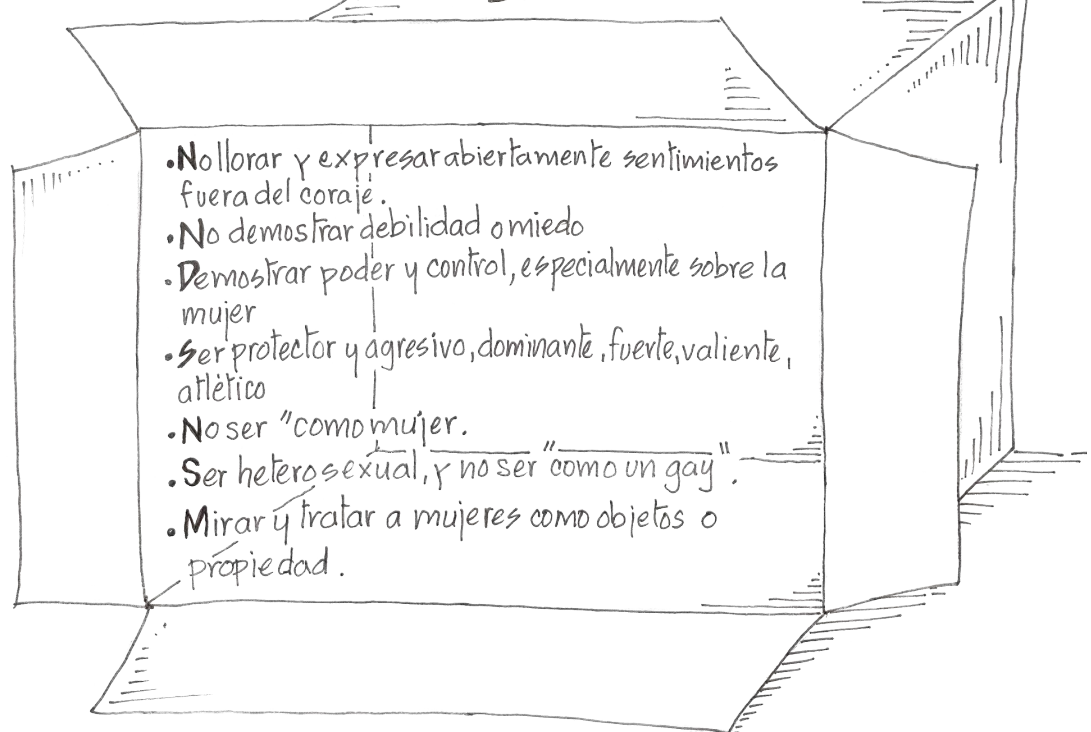 •No llorar y expresar abiertamente sentimientos
fuera del coraje.
•No demostrar debilidad o miedo
•Demostrar poder y control, especialmente sobre la
mujer
•Ser protector y agresivo, dominante, fuerte, valiente,
atlético
•No ser "como mujer.
•Ser heterosexual, y no ser "como un gay".
•Mirar y tratar a mujeres como objetos o
propiedad.